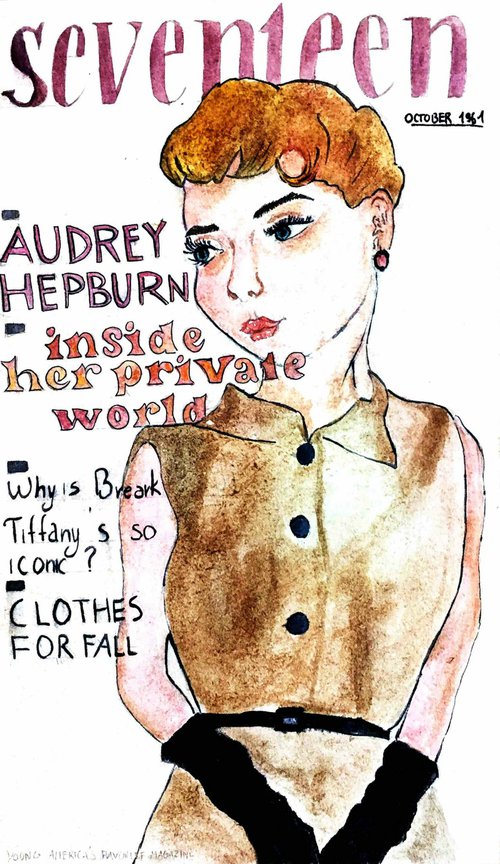 seventeen
OCTOBER 1961
AUDREY
HEPBURN
inside
her private
world
Why is Breark
Tiffany's so
iconic?
CLOTHES
FOR FALL
YOUNG AMERICA'S FAVORITE MAGAZINE